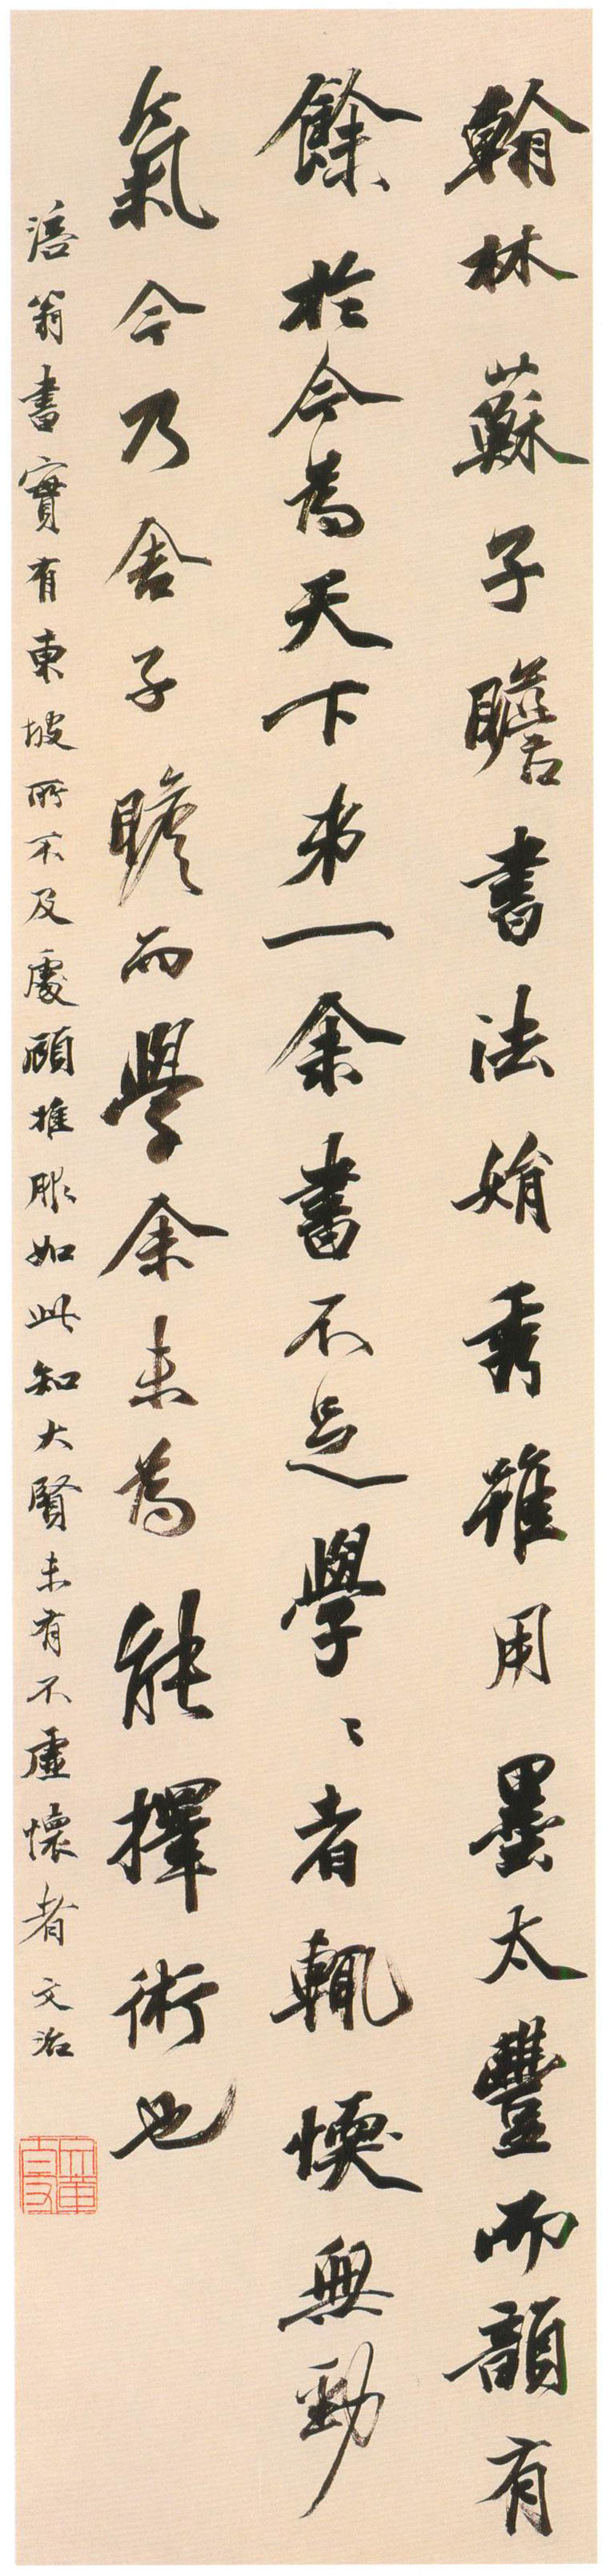 翰林蘇子瞻書法娟秀雖用墨太豐而韻有
餘於今為天下第一余書不足學〻者輒愞無勁
氣今乃舍子瞻而學余未為能擇術也
涪翁書實有東坡所不及處顧推服如此知大賢未有不虛懷者 文治